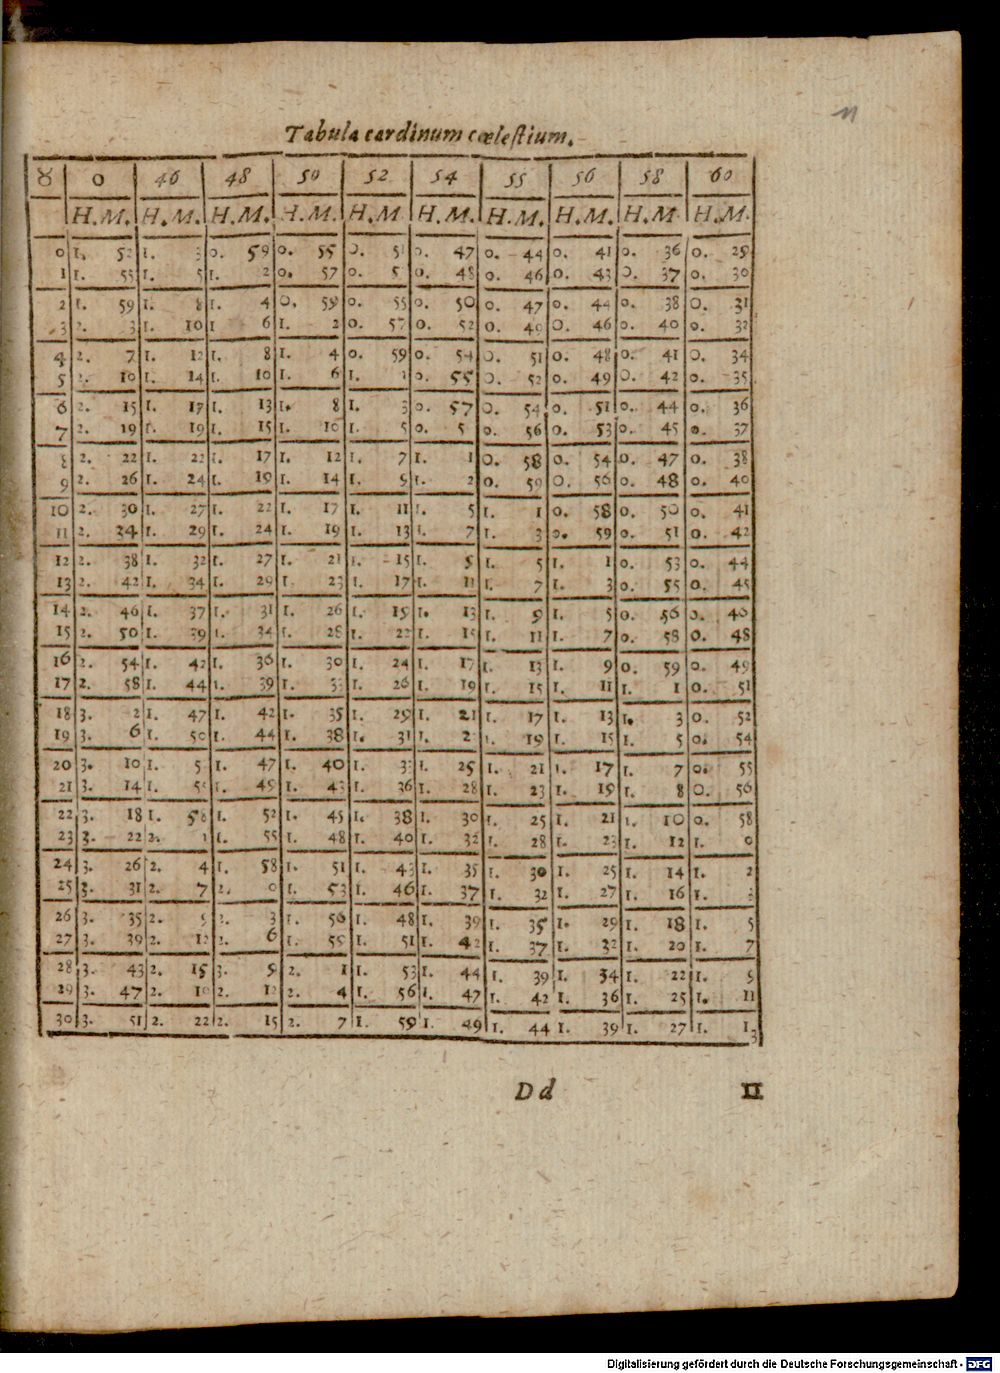 Tabula cardinum cœlestium.
♉ 0 46 48 50 52 54 55 56 58 60
H. M. H. M. H. M. H. M. H. M H. M. H. M. H. M. H. M H. M.
0 1. 52 1. 3 0. 59 0. 55 0. 51 0. 47 0. 44 0. 41 0. 36 0. 29
1 1. 55 1. 5 1. 2 0. 57 0. 5 0. 48 0. 46 0. 43 0. 37 0. 30
2 1. 59 1. 8 1. 4 0. 59 0. 55 0. 50 0. 47 0. 44 0. 38 0. 31
3 2. 3 1. 10 1 6 1. 2 0. 57 0. 52 0. 49 0. 46 0. 40 0. 32
4 2. 7 1. 12 1. 8 1. 4 0. 59 0. 54 0. 51 0. 48 0. 41 0. 34
5 2. 10 1. 14 1. 10 1. 6 1. 1 0. 55 0. 52 0. 49 0. 42 0. 35
6 2. 15 1. 17 1. 13 1. 8 1. 3 0. 57 0. 54 0. 51 0. 44 0. 36
7 2. 19 1. 19 1. 15 1. 10 1. 5 0. 5 0. 56 0. 53 0. 45 0. 37
8 2. 22 1. 22 1. 17 1. 12 1. 7 1. 1 0. 58 0. 54 0. 47 0. 38
9 2. 26 1. 24 1. 19 1. 14 1. 9 1. 2 0. 59 0. 56 0. 48 0. 40
10 2. 30 1. 27 1. 22 1. 17 1. 11 1. 5 1. 1 0. 58 0. 50 0. 41
11 2. 34 1. 29 1. 24 1. 19 1. 13 1. 7 1. 3 0. 59 0. 51 0. 42
12 2. 38 1. 32 1. 27 1. 21 1. 15 1. 9 1. 5 1. 1 0. 53 0. 44
13 2. 42 1. 34 1. 29 1. 23 1. 17 1. 11 1. 7 1. 3 0. 55 0. 45
14 2. 46 1. 37 1. 31 1. 26 1. 19 1. 13 1. 9 1. 5 0. 56 0. 46
15 2. 50 1. 39 1. 34 1. 28 1. 22 1. 15 1. 11 1. 7 0. 58 0. 48
16 2. 54 1. 42 1. 36 1. 30 1. 24 1. 17 1. 13 1. 9 0. 59 0. 49
17 2. 58 1. 44 1. 39 1. 33 1. 26 1. 19 1. 15 1. 11 1. 1 0. 51
18 3. 2 1. 47 1. 42 1. 35 1. 29 1. 21 1. 17 1. 13 1. 3 0. 52
19 3. 6 1. 50 1. 44 1. 38 1. 31 1. 2 1. 19 1. 15 1. 5 0. 54
20 3. 10 1. 5 1. 47 1. 40 1. 33 1. 25 1. 21 1. 17 1. 7 0. 55
21 3. 14 1. 1. 49 1. 43 1. 36 1. 28 1. 23 1. 19 1. 8 0. 56
22 3. 18 1. 58 1. 52 1. 45 1. 38 1. 30 1. 25 1. 21 1. 10 0. 58
23 3. 22 2. 1 1. 55 1. 48 1. 40 1. 32 1. 28 1. 23 1. 12 1. 0
24 3. 26 2. 4 1. 58 1. 51 1. 43 1. 35 1. 30 1. 25 1. 14 1. 2
25 3. 31 2. 7 2. 0 1. 53 1. 46 1. 37 1. 32 1. 27 1. 16 1. 3
26 3. 35 2. 9 2. 3 1. 56 1. 48 1. 39 1. 35 1. 29 1. 18 1. 5
27 3. 39 2. 12 2. 6 1. 59 1. 51 1. 42 1. 37 1. 32 1. 20 1. 7
28 3. 43 2. 15 3. 9 2. 1 1. 53 1. 44 1. 39 1. 34 1. 22 1. 9
29 3. 47 2. 2. 12 2. 4 1. 56 1. 47 1. 42 1. 36 1. 25 1. 11
30 3. 51 2. 22 2. 15 2. 7 1. 59 1. 49 1. 44 1. 39 1. 27 1. 13
Dd ♊
Digitalisierung gefördert durch die Deutsche Forschungsgemeinschaft - DFG